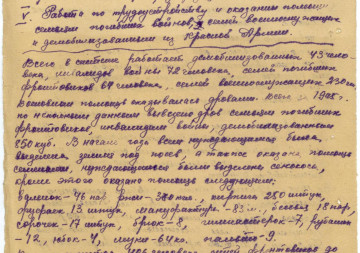 V. Работа по трудоустройству и оказанию помощи
семьям погибших воинов, семей военнослужащих
и демобилизованным из Красной Армии.
Всего в системе работает демобилизованных 43 чело-
века, инвалидов войны 72 человека, семей погибших
фронтовиков 64 человека, семей военнослужащих 230 чел.
Основная помощь оказывалась дровами. Всего за 194 г.
по неполным данным вывезено дров семьям погибших
фронтовиков, инвалидам войны, демобилизованным
850 куб. В начале года всем нуждающимся была
выделена земля под посев, а также оказана помощь
семенами, нуждающимся были выделены сенокоса,
кроме этого оказано помощи следующим:
валенок - 46 пар, 280 штук,
13 штук, мануфактура - 83 м, 18 пар,
сорочек - 17 штук, брюк - 8, гимнастерок - 7, рубашек
- 12, юбок - 4, муки - 64 кг. пальто - 9.
фронтовиков до